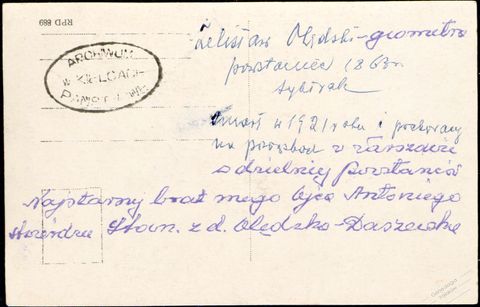 RPD 669
ARCHIWUM
w KIELCACH
PAŃSTWOWE
Żelisław Olędzki - geometra
powstaniec 1863 r
sybirak
zmarł w 1921 roku i pochowany
na powązkach w Warszawie
w dzielnicy powstańców
Najstarszy brat mego ojca Antoniego
stwierdza Stan. z d. Olędzka-Daszewska